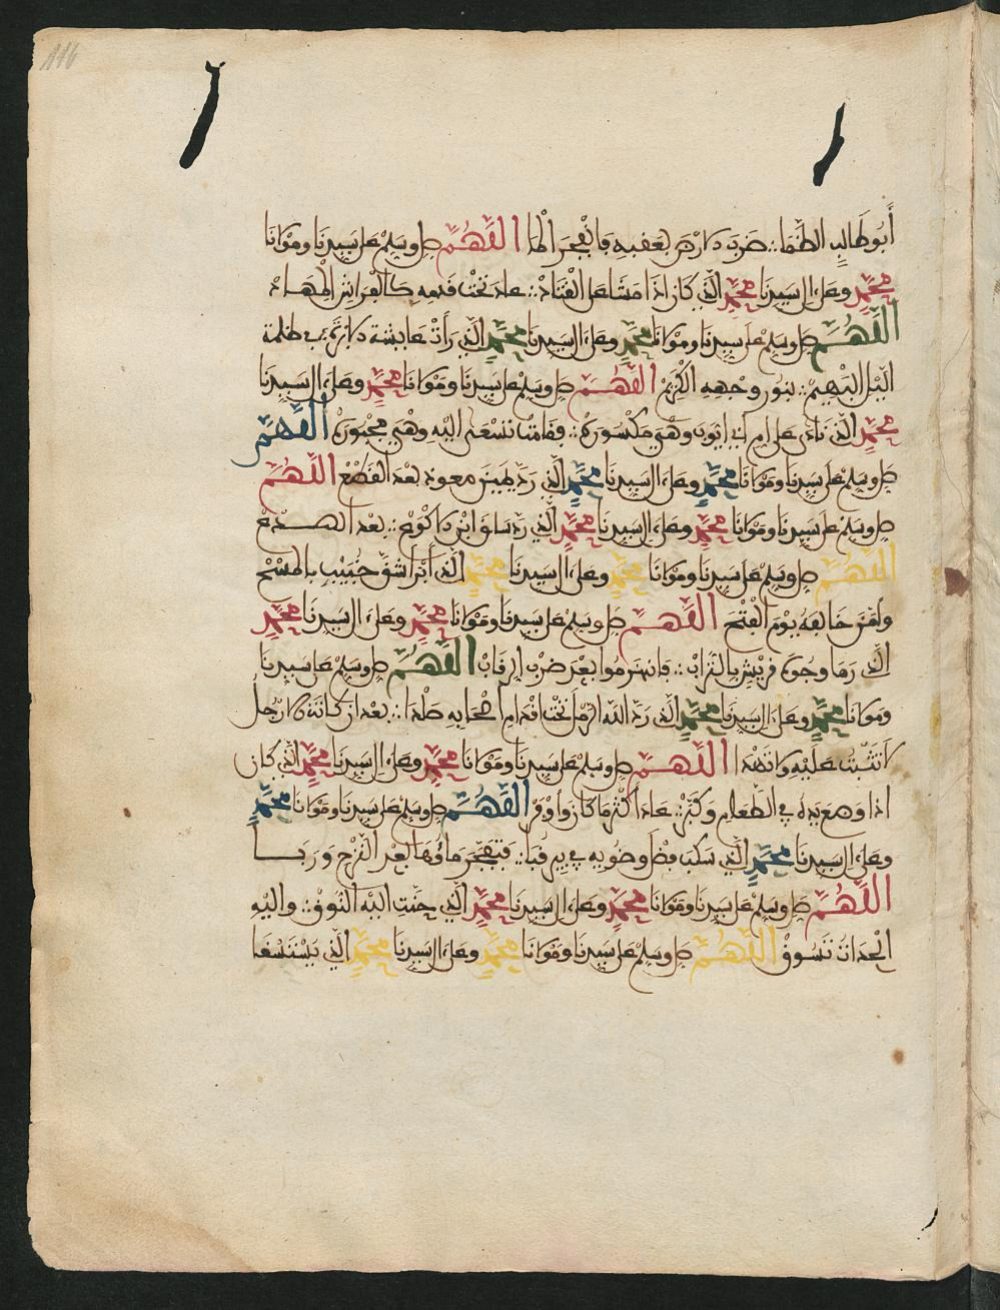 116
أَبُو طَالِبٍ الظَّمَا ∴ ضَرَبَ الارْضَ بعَقبِهِ فَانْفَجَرَ الْمَا اللَّهُمَّ صلِّ وسَلِّمْ علَى سَيِّدِنَا ومَوْلانَا
مُحَمَّدٍ وعلَى ءال سَيِّدِنَا مُحَمَّدٍ الَّذِي كَانَ اذَا مَشَا علَى الْقَتَادِ ∴ عادَ تَحْتَ قدَمِهِ كالْفِرَاشِ الْمِهَادِ
اللَّهُمَّ صلِّ وسَلِّمْ علَى سَيِّدِنَا ومَوْلانَا مُحَمَّدٍ وعلَى ءال سَيِّدِنَا مُحَمَّدٍ الَّذِي رَأَتْ عَايِشَة الابْرَةَ في ظلمة
اليْلِ الْبَهِيمْ ∴ بنُورِ وجْهِهِ الْكَرِيمْ اللَّهُمَّ صلِّ وسَلِّمْ علَى سَيِّدِنَا ومَوْلانَا مُحَمَّدٍ وعلَى ءال سَيِّدِنَا
مُحَمَّدٍ الَّذِي نَادَى علَى ام ابي ايُّوب وهْيَ مَكْسُورَةْ ∴ فقَامَتْ تَسْعَى الَيْهِ وهْيَ مَجْبُورَةْ اللَّهُمَّ
صلِّ وسَلِّمْ علَى سَيِّدِنَا ومَوْلانَا مُحَمَّدٍ وعلَى ءال سَيِّدِنَا مُحَمَّدٍ الَّذِي رَدَّ يَمِينَ معوذ بعْدَ الْقَطْعْ اللَّهُمَّ
صلِّ وسَلِّمْ علَى سَيِّدِنَا ومَوْلانَا مُحَمَّدٍ وعلَى ءال سَيِّدِنَا مُحَمَّدٍ الَّذِي رَدَّ سَاقَ ابْنِ الاكْوَعْ ∴ بعْدَ الصَّدْعْ
اللَّهُمَّ صلِّ وسَلِّمْ علَى سَيِّدِنَا ومَوْلانَا مُحَمَّدٍ وعلَى ءال سَيِّدِنَا مُحَمَّدٍ الَّذِي أبْرَا شقَّ خُبَيْبٍ بالْمَسْحْ
ولَقَنَ خَالِفَهُ يوْمَ الْفَتْحْ اللَّهُمَّ صلِّ وسَلِّمْ علَى سَيِّدِنَا ومَوْلانَا مُحَمَّدٍ وعلَى ءال سَيِّدِنَا مُحَمَّدٍ
الَّذِي رَمَا وجُوهَ قريْشٍ بالتُّرَابْ ∴ فانهَزَمُوا بعْدَ ضرْبِ الرِقَابْ اللَّهُمَّ صلِّ وسَلِّمْ علَى سَيِّدِنَا
ومَوْلانَا مُحَمَّدٍ وعلَى ءال سَيِّدِنَا مُحَمَّدٍ الَّذِي رَدَّ اللهُ الرَّمْلَ تَحْتَ اقْدَامِ اصْحَابِهِ صَلْدَا ∴ بعْدَ ان كَانَتِ الارْجُلُ
لا تَثْبُتُ علَيْهِ ولا تَهْدَا اللَّهُمَّ صلِّ وسَلِّمْ علَى سَيِّدِنَا ومَوْلانَا مُحَمَّدٍ وعلَى ءال سَيِّدِنَا مُحَمَّدٍ الَّذِي كَانَ
اذا وضعَ يدَهُ في الطَّعَامِ وكَبَّرْ ∴ عادَ اكْثرَ ما كَانَ واوْفَرْ اللَّهُمَّ صلِّ وسَلِّمْ علَى سَيِّدِنَا ومَوْلانَا مُحَمَّدٍ
وعلَى ءال سَيِّدِنَا مُحَمَّدٍ الَّذِي سَكَبَ فضْلَ وضُوِيهِ في بِيرِ قُبَا ∴ فتَفَجَّرَ ماؤُهَا بعْدَ النَّزْحِ وَرَبَا
اللَّهُمَّ صلِّ وسَلِّمْ علَى سَيِّدِنَا ومَوْلانَا مُحَمَّدٍ وعلَى ءال سَيِّدِنَا مُحَمَّدٍ الَّذِي حنَّتِ الَيْهِ النُّوقْ ∴ والَيْهِ
الْحُدَاتُ تَسُوقْ اللَّهُمَّ صلِّ وسَلِّمْ علَى سَيِّدِنَا ومَوْلانَا مُحَمَّدٍ وعلَى ءال سَيِّدِنَا مُحَمَّدٍ الَّذِي يُسْتَسْقَا